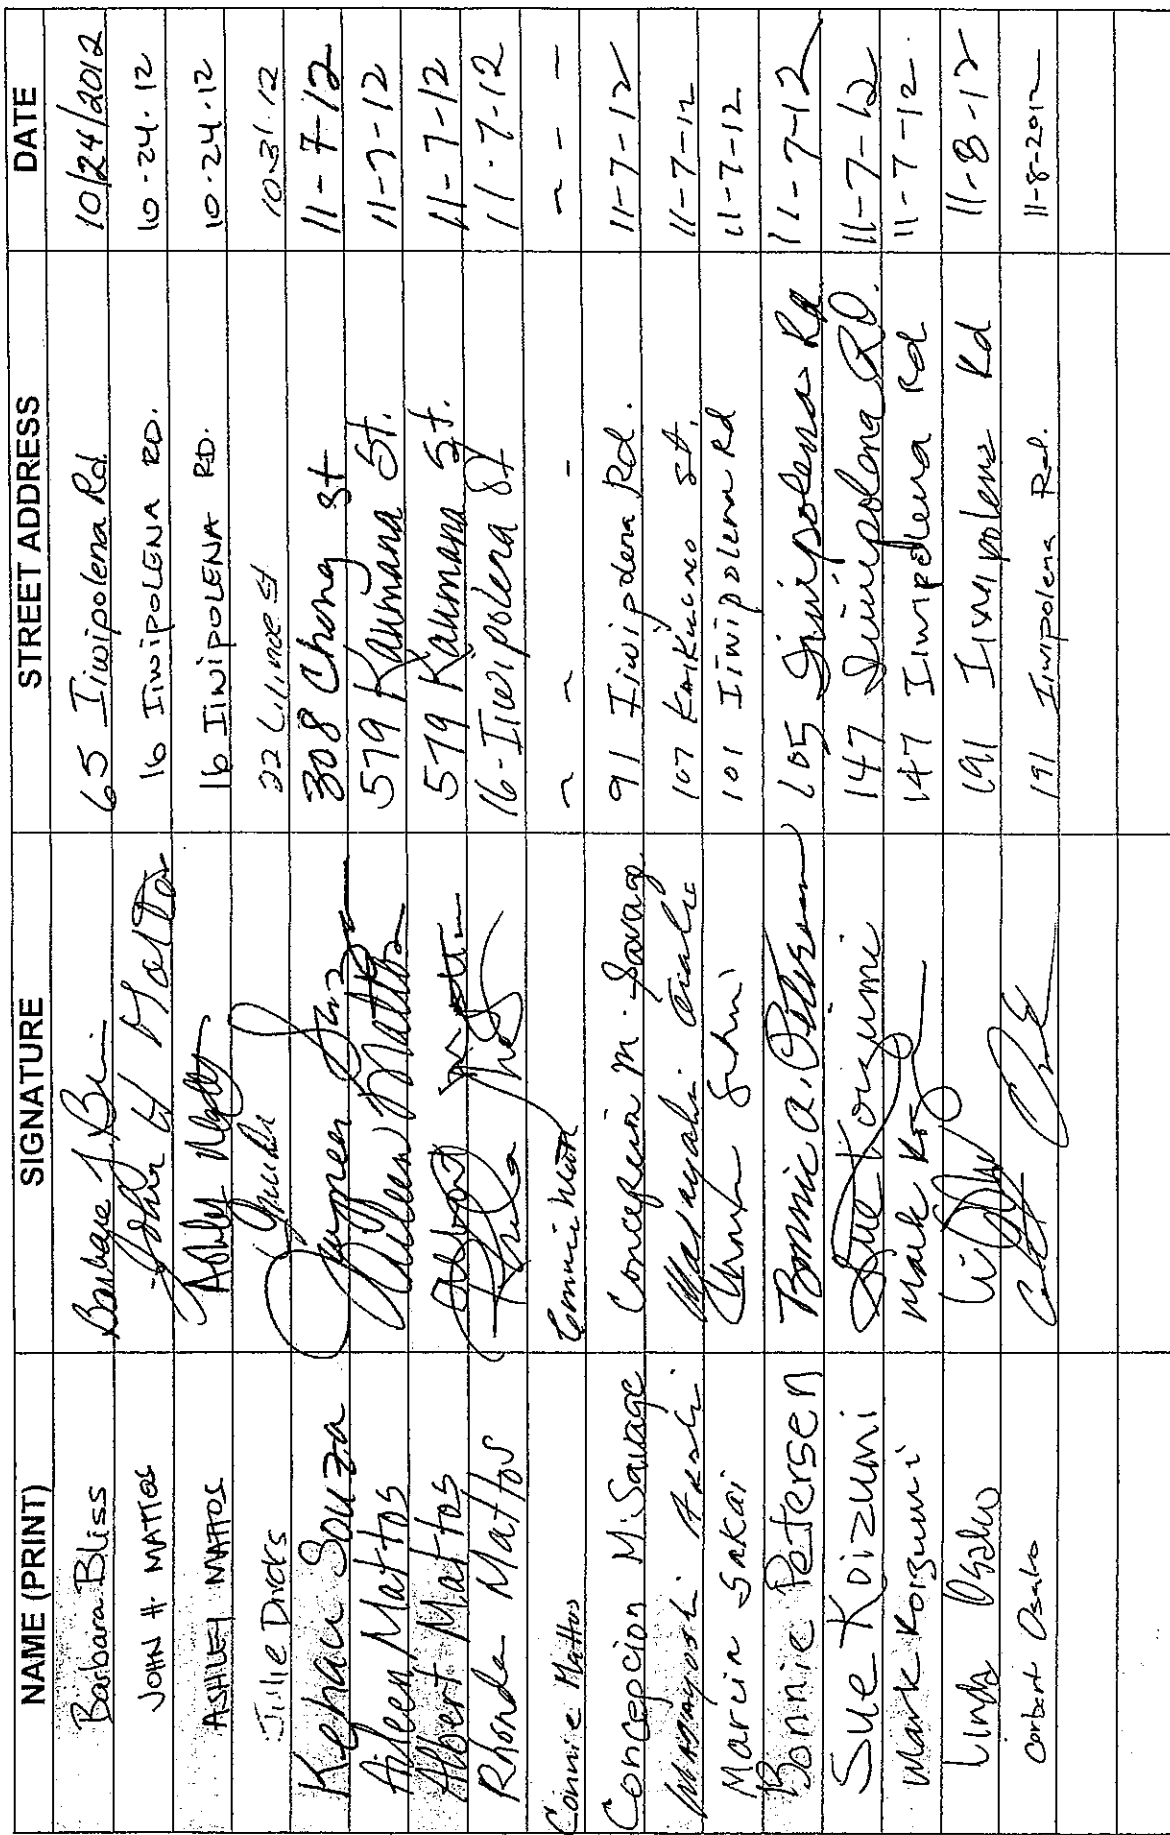 NAME (PRINT) SIGNATURE STREET ADDRESS DATE
Barbara Bliss Barbara J. Bli 65 Iiwipolena Rd. 10/24/2012
JOHN H MATTOS John H Mattos 16 IiwiPOLENA RD. 10-24-12
ASHLEY MATTOS Ashley Mattos 16 IiwiPOLENA RD. 10-24-12
Julie Dircks 10-31-12
Kehau Souza 308 Chong St 11-7-12
Aileen Mattos Aileen Mattos 579 Kaumana St. 11-7-12
Albert Mattos Albert Mattos 579 Kaumana St. 11-7-12
Rhonda Mattos 16-Iiwipolena St 11-7-12
Connie Mattos Connie Mattos ~ ~ ~ - ~ - -
Concepcion M. Savage Concepcion M. Savage 91 Iiwipolena Rd. 11-7-12
Masayoshi Asahi Masayoshi Asahi 107 St. 11-7-12
Marcia Sakai 101 Iiwipolena Rd 11-7-12
Bonnie Petersen Bonnie A. Petersen 105 Iiwipolena Rd 11-7-12
Sue Koizumi Sue Koizumi 147 Iiwipolena RD. 11-7-12
Mark Koizumi Mark K 147 Iiwipolena Rd 11-7-12.
Linda Osako 191 Iiwipolena Rd 11-8-12
Corbert Osako 191 Iiwipolena Rd. 11-8-2012